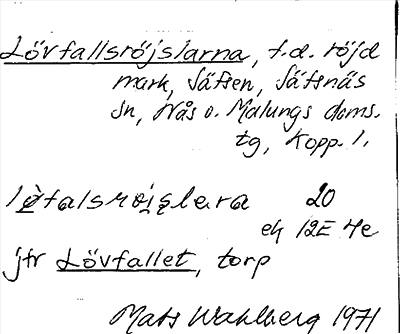 Lövfallsröjslarna, f.d. röjd
mark, Säfsen, Säfsnäs
sn, Nås o. Malungs doms.
tg, Kopp. l.
20
ek 12E 4e
jfr Lövfallet, torp
Mats Wahlberg 1971